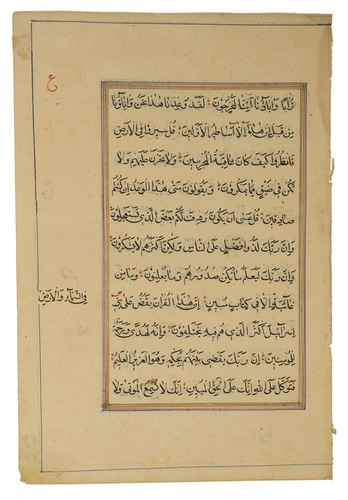 ع
تُرَابًا وَاٰبَاؤُنَا اَئِنَّا لَمُخْرَجُونَ لَقَدْ وُعِدْنَا هٰذَا نَحْنُ وَاٰبَاؤُنَا
مِنْ قَبْلُ اِنْ هٰذَا اِلَّا اَسَاطِيرُ الْاَوَّلِينَ قُلْ سِيرُوا فِي الْاَرْضِ
فَانْظُرُوا كَيْفَ كَانَ عَاقِبَةُ الْمُجْرِمِينَ وَلَا تَحْزَنْ عَلَيْهِمْ وَلَا
تَكُنْ فِي ضَيْقٍ مِمَّا يَمْكُرُونَ وَيَقُولُونَ مَتٰى هٰذَا الْوَعْدُ اِنْ كُنْتُمْ
صَادِقِينَ قُلْ عَسٰى اَنْ يَكُونَ رَدِفَ لَكُمْ بَعْضُ الَّذِي تَسْتَعْجِلُونَ
وَاِنَّ رَبَّكَ لَذُو فَضْلٍ عَلَى النَّاسِ وَلٰكِنَّ اَكْثَرَهُمْ لَا يَشْكُرُونَ
وَاِنَّ رَبَّكَ لَيَعْلَمُ مَا تُكِنُّ صُدُورُهُمْ وَمَا يُعْلِنُونَ وَمَا مِنْ
غَائِبَةٍ اِلَّا فِي كِتَابٍ مُبِينٍ اِنَّ هٰذَا الْقُرْاٰنَ يَقُصُّ عَلٰى بَنِي
فِي السَّمَاءِ وَالْاَرْضِ
اِسْرَائِيلَ اَكْثَرَ الَّذِي هُمْ فِيهِ يَخْتَلِفُونَ وَاِنَّهُ لَهُدًى وَرَحْمَةٌ
لِلْمُؤْمِنِينَ اِنَّ رَبَّكَ يَقْضِي بَيْنَهُمْ بِحُكْمِهِ وَهُوَ الْعَزِيزُ الْعَلِيمُ
فَتَوَكَّلْ عَلَى اللهِ اِنَّكَ عَلَى الْحَقِّ الْمُبِينِ اِنَّكَ لَا تُسْمِعُ الْمَوْتٰى وَلَا